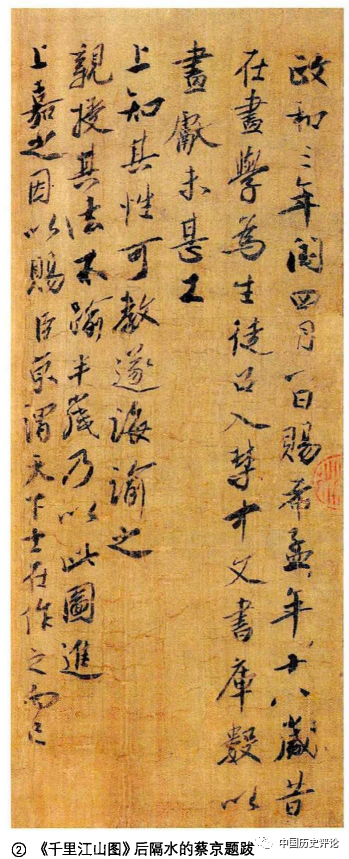 政和三年閏四月一日賜希孟年十八歲昔
在畫學為生徒召入禁中文書庫數以
畫獻未甚工
上知其性可教遂誨諭之
親授其法不踰半歲乃以此圖進
上嘉之因以賜臣京謂天下士在作之而已
中国历史评论
② 《千里江山图》后隔水的蔡京题跋